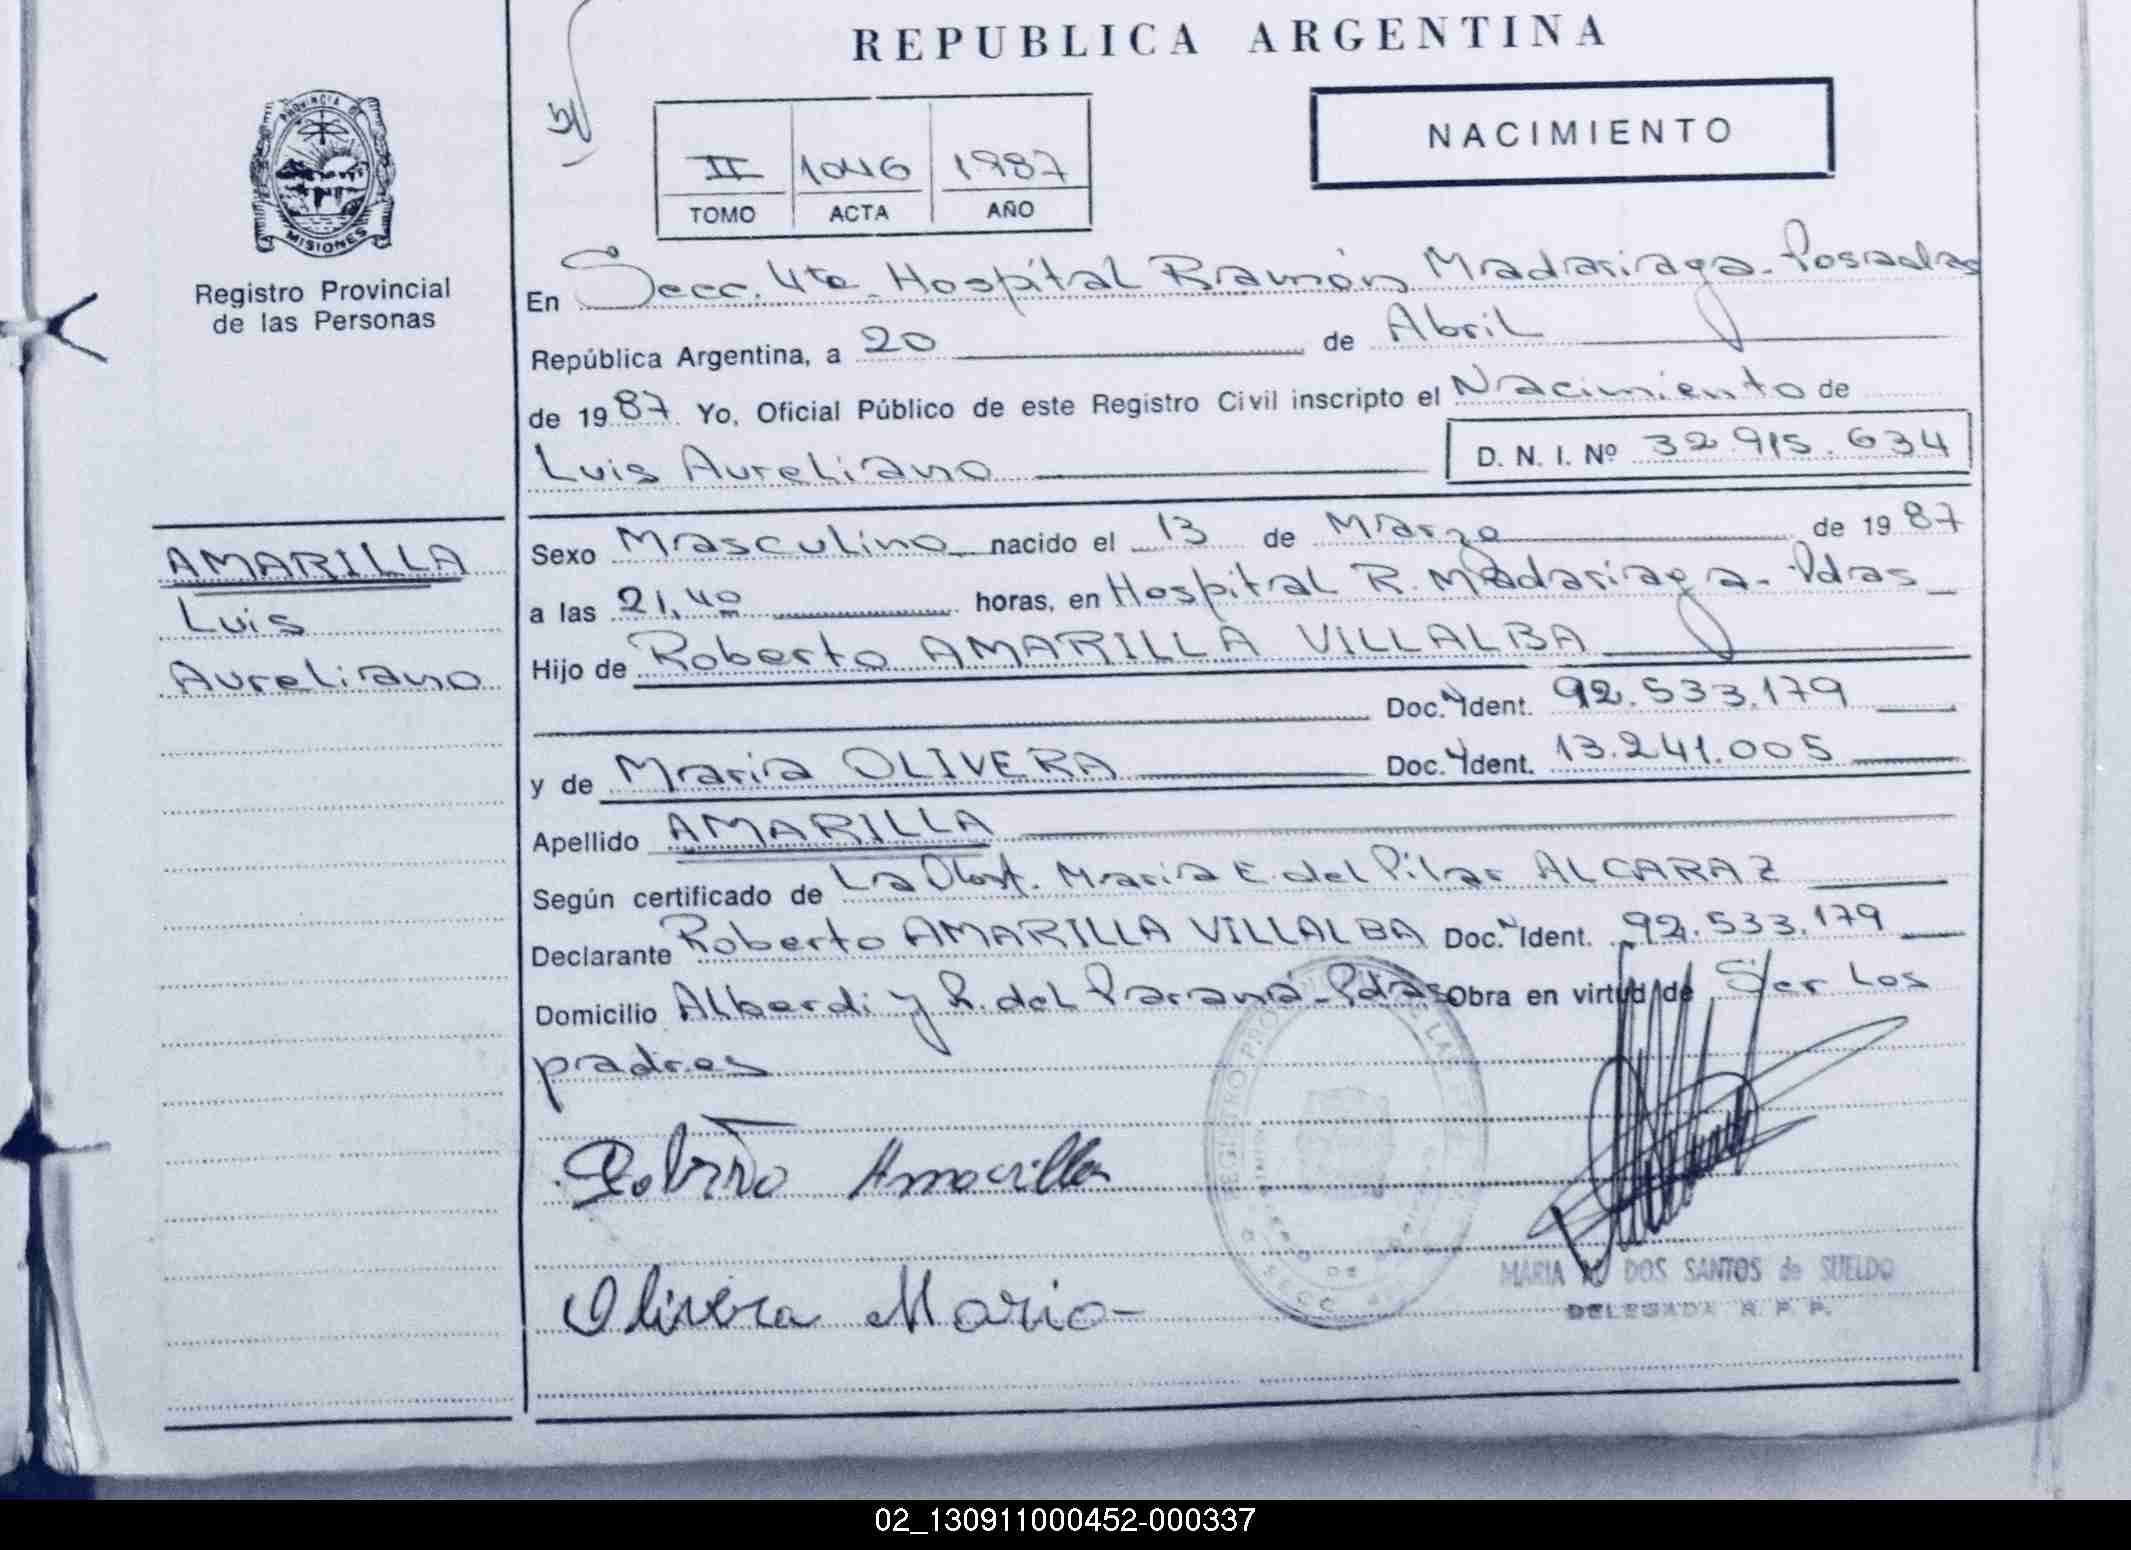 REPUBLICA ARGENTINA
NACIMIENTO
PROVINCIA DE
MISIONES
Registro Provincial
de las Personas
II 1046 1987
TOMO ACTA AÑO
En Secc. 4ta. Hospital Ramón Madariaga - Posadas
República Argentina, a 20 de Abril
de 1987 Yo, Oficial Público de este Registro Civil inscripto el Nacimiento de
Luis Aureliano D. N. I. Nº 32.915.634
AMARILLA
Luis
Aureliano
Sexo Masculino nacido el 13 de Marzo de 1987
a las 21,40 horas, en Hospital R. Madariaga - Pdas
Hijo de Roberto AMARILLA VILLALBA
Doc. N Ident. 92.533.179
y de María OLIVERA Doc. Ident. 13.241.005
Apellido AMARILLA
Según certificado de La Obst. María E. del Pilar ALCARAZ
Declarante Roberto AMARILLA VILLALBA Doc. N Ident. 92.533.179
Domicilio Alberdi y R. del Paraná - Pdas Obra en virtud de Ser los
padres
Roberto Amarilla
Olivera Maria
MARIA DOS SANTOS de SUELDO
DELEGADA R. P. P.
02_130911000452-000337